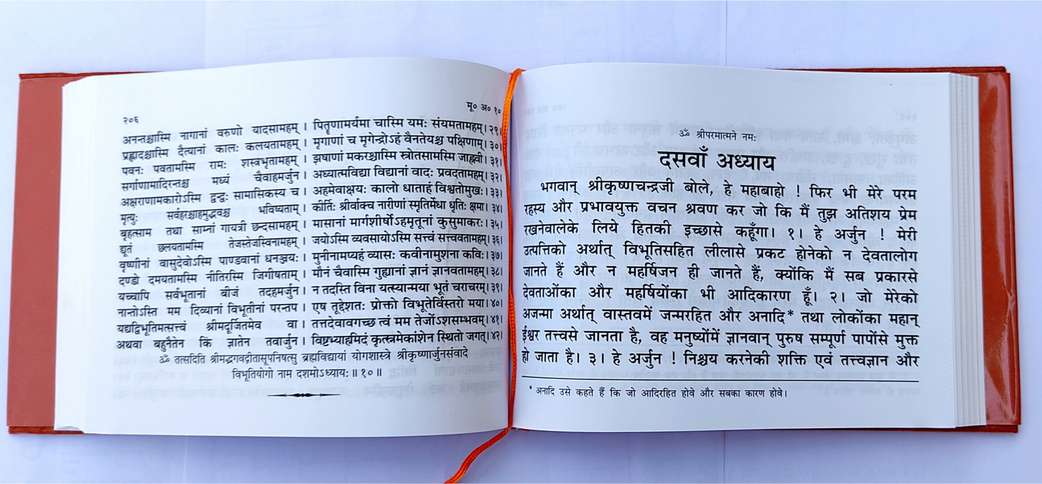 २०६
मू० अ० १०
अनन्तश्चास्मि नागानां वरुणो यादसामहम् । पितॄणामर्यमा चास्मि यमः संयमतामहम्। २९।
प्रह्लादश्चास्मि दैत्यानां कालः कलयतामहम् । मृगाणां च मृगेन्द्रोऽहं वैनतेयश्च पक्षिणाम्। ३०।
पवनः पवतामस्मि रामः शस्त्रभृतामहम् । झषाणां मकरश्चास्मि स्त्रोतसामस्मि जाह्नवी। ३१।
सर्गाणामादिरन्तश्च मध्यं चैवाहमर्जुन । अध्यात्मविद्या विद्यानां वादः प्रवदतामहम्। ३२।
अक्षराणामकारोऽस्मि द्वन्द्वः सामासिकस्य च । अहमेवाक्षयः कालो धाताहं विश्वतोमुखः। ३३।
मृत्युः सर्वहरश्चाहमुद्भवश्च भविष्यताम् । कीर्तिः श्रीर्वाक्च नारीणां स्मृतिर्मेधा धृतिः क्षमा। ३४।
बृहत्साम तथा साम्नां गायत्री छन्दसामहम् । मासानां मार्गशीर्षोऽहमृतूनां कुसुमाकरः। ३५।
द्यूतं छलयतामस्मि तेजस्तेजस्विनामहम् । जयोऽस्मि व्यवसायोऽस्मि सत्त्वं सत्त्ववतामहम्। ३६।
वृष्णीनां वासुदेवोऽस्मि पाण्डवानां धनञ्जयः । मुनीनामप्यहं व्यासः कवीनामुशना कविः। ३७।
दण्डो दमयतामस्मि नीतिरस्मि जिगीषताम् । मौनं चैवास्मि गुह्यानां ज्ञानं ज्ञानवतामहम्। ३८।
यच्चापि सर्वभूतानां बीजं तदहमर्जुन । न तदस्ति विना यत्स्यान्मया भूतं चराचरम्। ३९।
नान्तोऽस्ति मम दिव्यानां विभूतीनां परन्तप । एष तूद्देशतः प्रोक्तो विभूतेर्विस्तरो मया। ४०।
यद्यद्विभूतिमत्सत्त्वं श्रीमदूर्जितमेव वा । तत्तदेवावगच्छ त्वं मम तेजोंऽशसम्भवम्। ४१।
अथवा बहुनैतेन किं ज्ञातेन तवार्जुन । विष्टभ्याहमिदं कृत्स्नमेकांशेन स्थितो जगत्। ४२।
ॐ तत्सदिति श्रीमद्भगवद्गीतासूपनिषत्सु ब्रह्मविद्यायां योगशास्त्रे श्रीकृष्णार्जुनसंवादे
विभूतियोगो नाम दशमोऽध्यायः॥ १०॥
ॐ श्रीपरमात्मने नमः
दसवाँ अध्याय
भगवान् श्रीकृष्णचन्द्रजी बोले, हे महाबाहो ! फिर भी मेरे परम
रहस्य और प्रभावयुक्त वचन श्रवण कर जो कि मैं तुझ अतिशय प्रेम
रखनेवालेके लिये हितकी इच्छासे कहूँगा। १। हे अर्जुन ! मेरी
उत्पत्तिको अर्थात् विभूतिसहित लीलासे प्रकट होनेको न देवतालोग
जानते हैं और न महर्षिजन ही जानते हैं, क्योंकि मैं सब प्रकारसे
देवताओंका और महर्षियोंका भी आदिकारण हूँ। २। जो मेरेको
अजन्मा अर्थात् वास्तवमें जन्मरहित और अनादि* तथा लोकोंका महान्
ईश्वर तत्त्वसे जानता है, वह मनुष्योंमें ज्ञानवान् पुरुष सम्पूर्ण पापोंसे मुक्त
हो जाता है। ३। हे अर्जुन ! निश्चय करनेकी शक्ति एवं तत्त्वज्ञान और
* अनादि उसे कहते हैं कि जो आदिरहित होवे और सबका कारण होवे।